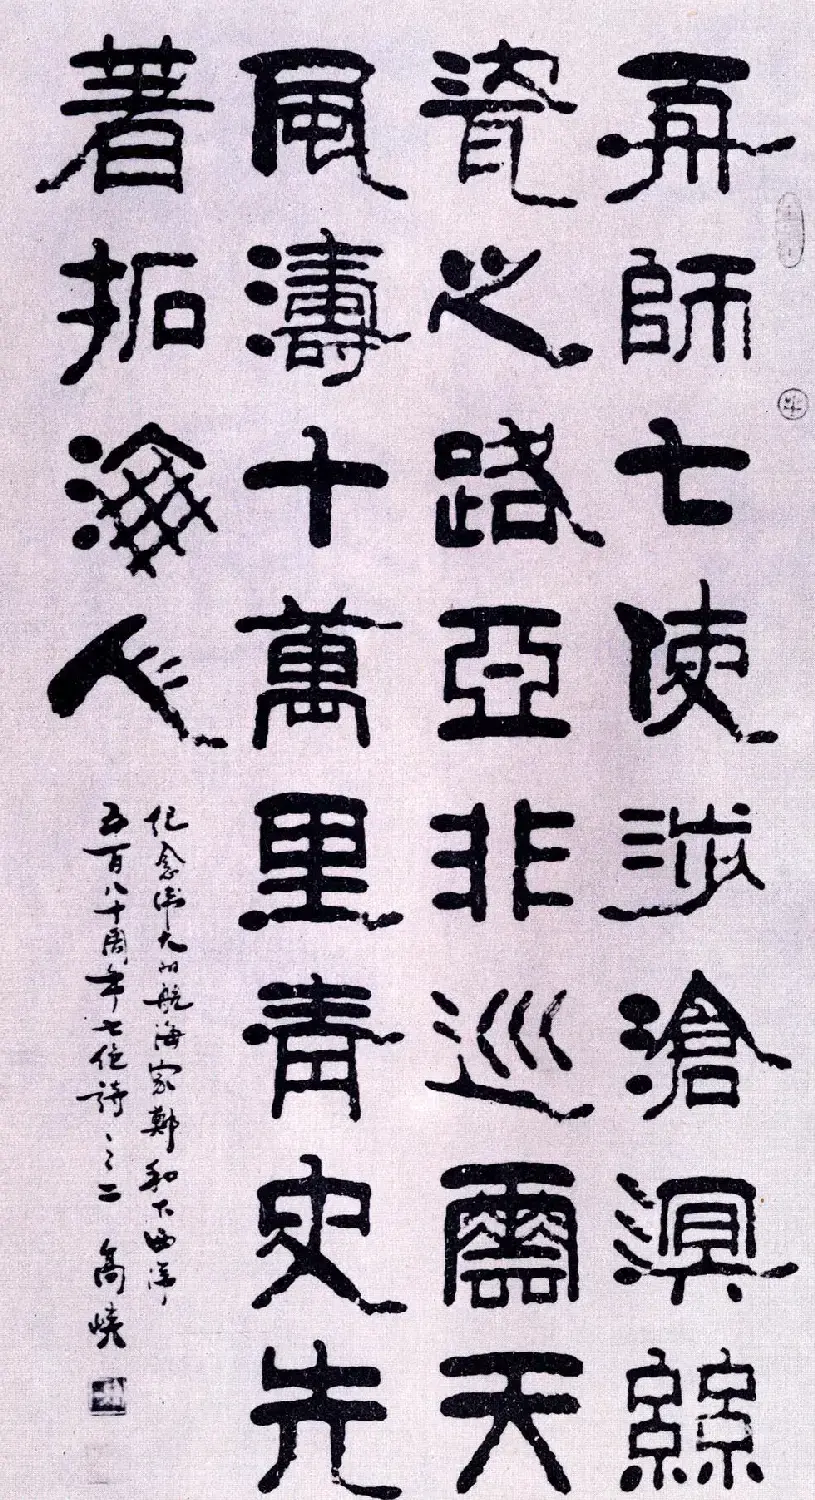 舟師七使涉滄溟絲
瓷之路亞非巡雲天
風濤十萬里青史先
著拓海人
紀念偉大的航海家鄭和下西洋
五百八十周年七絕詩之二 高嶢